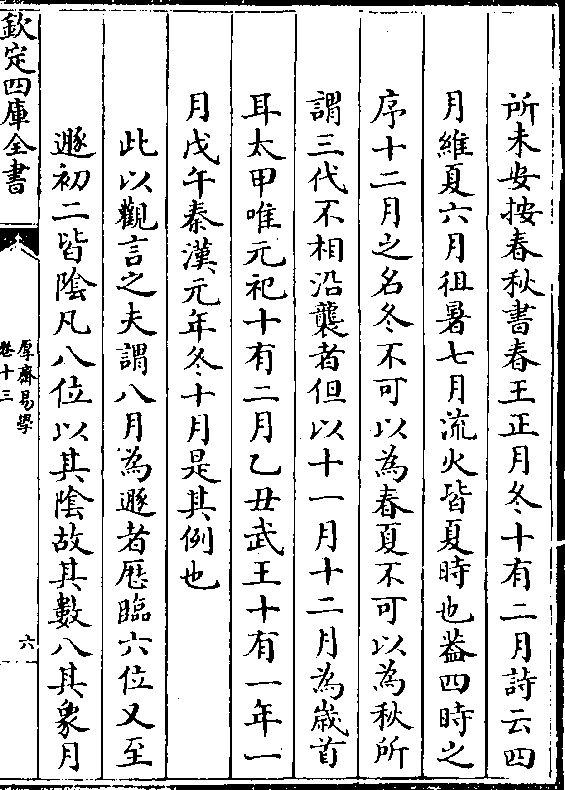 所未安按春秋書春王正月冬十有二月詩云四
月維夏六月徂暑七月流火皆夏時也葢四時之
序十二月之名冬不可以為春夏不可以為秋所
謂三代不相沿襲者但以十一月十二月為歲首
耳太甲唯元祀十有二月乙丑武王十有一年一
月戊午秦漢元年冬十月是其例也
此以觀言之夫謂八月為遯者厯臨六位又至
遯初二皆陰凡八位以其陰故其數八其象月
欽定四庫全書
厚齋易學
卷十三
六